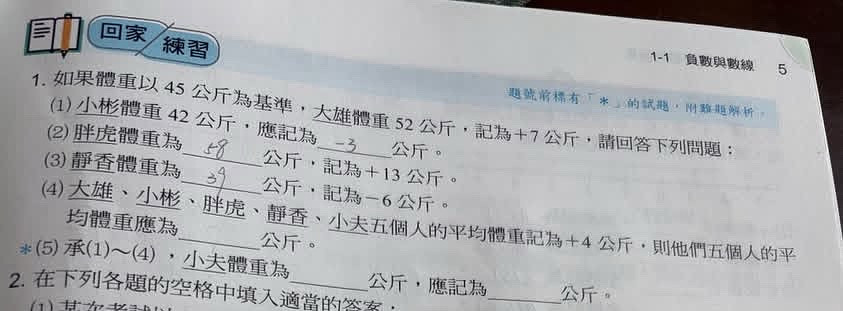 回家練習
1-1 負數與數線 5
題號前標有「*」的試題,附難題解析。
1. 如果體重以 45 公斤為基準,大雄體重 52 公斤,記為+7 公斤,請回答下列問題:
(1) 小彬體重 42 公斤,應記為 -3 公斤。
(2) 胖虎體重為 58 公斤,記為+13 公斤。
(3) 靜香體重為 39 公斤,記為-6 公斤。
(4) 大雄、小彬、胖虎、靜香、小夫五個人的平均體重記為+4 公斤,則他們五個人的平
均體重應為 公斤。
*(5) 承(1)~(4),小夫體重為 公斤,應記為 公斤。
2. 在下列各題的空格中填入適當的答案:
(1) 某次考試以